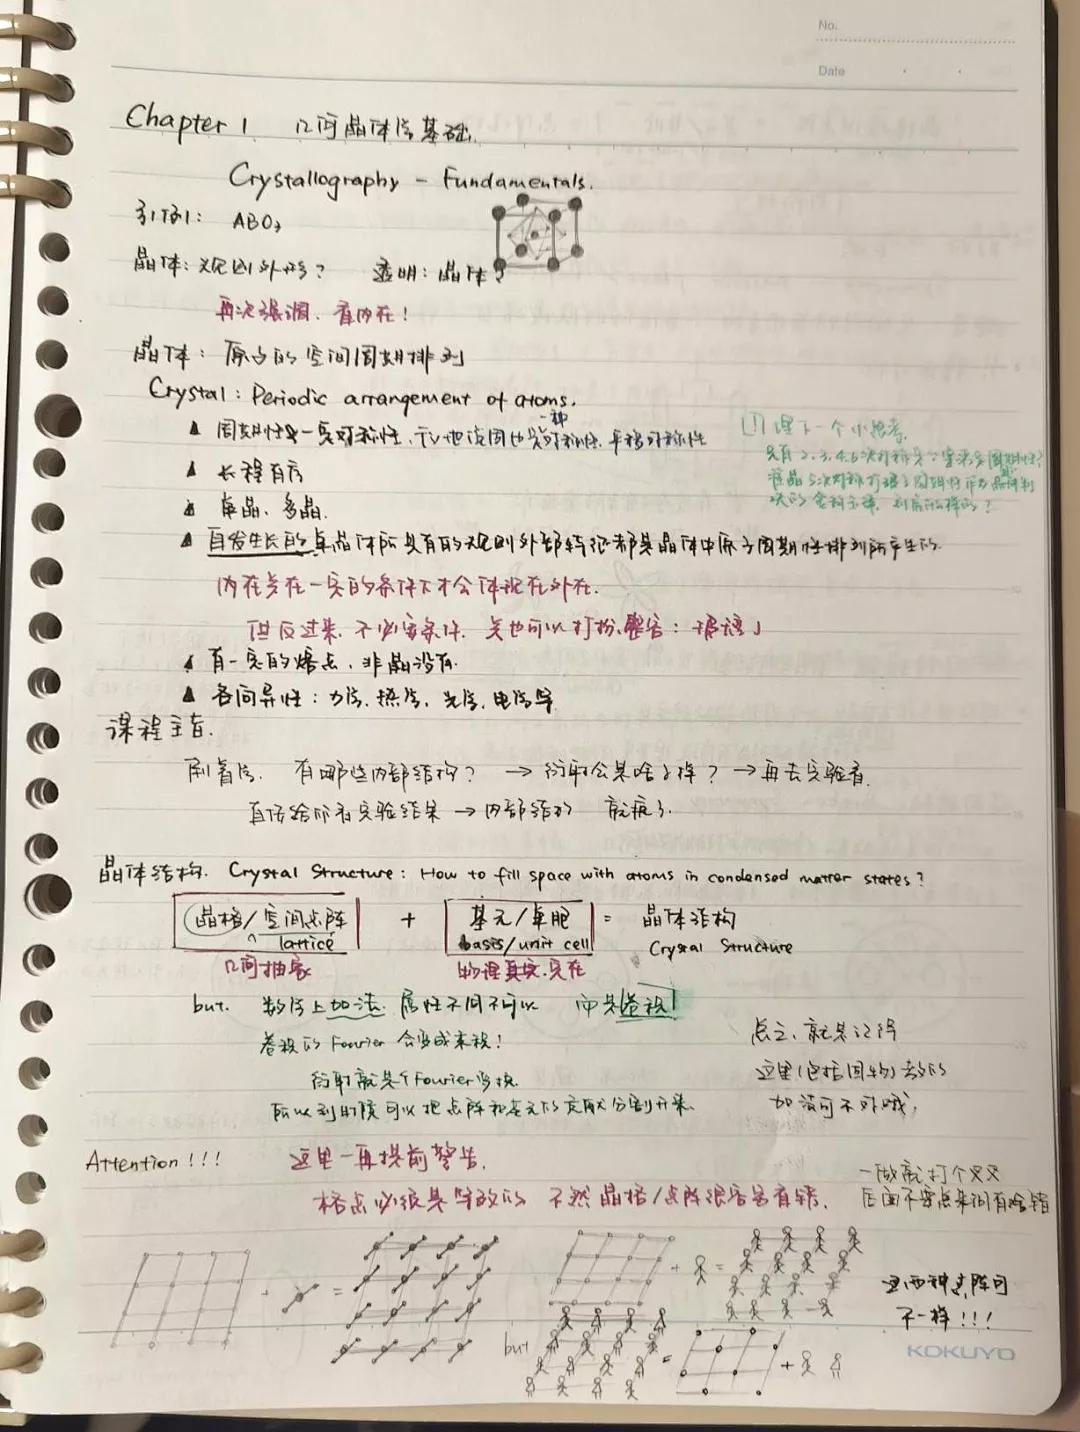 No.
Date
Chapter 1 几何晶体学基础.
Crystallography - Fundamentals.
引例: ABO₃
晶体: 规则外形? 透明: 晶体?
再次强调、看内在!
晶体: 原子的空间周期排列
Crystal: Periodic arrangement of atoms.
周期性是一定对称性, 平移对称性
一种
[1] 埋下一个小思考,
长程有序
单晶、多晶.
自发生长的单晶体所具有的规则外部特征都是晶体中原子周期性排列所产生的.
内在美在一定的条件下才会体现在外在.
但反过来, 不必要条件. 美也可以打扮、整容:
有一定的熔点, 非晶没有.
各向异性: 力学、热学、光学、电学等
课程主旨.
有哪些内部结构? → 衍射会是啥子样? → 再去实验看.
直接给你看实验结果 → 内部结构 就疯了.
晶体结构. Crystal Structure: How to fill space with atoms in condensed matter states?
晶格/空间点阵 + 基元/单胞 = 晶体结构
lattice basis/unit cell Crystal Structure
几何抽象 物理真实.实在
but. 数学上加法. 属性不同不可以 而是卷积!
卷积的 Fourier 会变成乘积!
衍射就是个Fourier变换.
所以到时候可以把点阵和基元的贡献分割开来.
点之, 就是记得
这里(包括回物)去的
加法可不对哦,
Attention!!! 这里一再提前警告.
格点必须是等效的 不然晶格/点阵很容易有错.
一做就打个叉叉
后面不要点来问有啥错
+ =
+ =
but = +
这两种点阵可
不一样!!!
KOKUYO